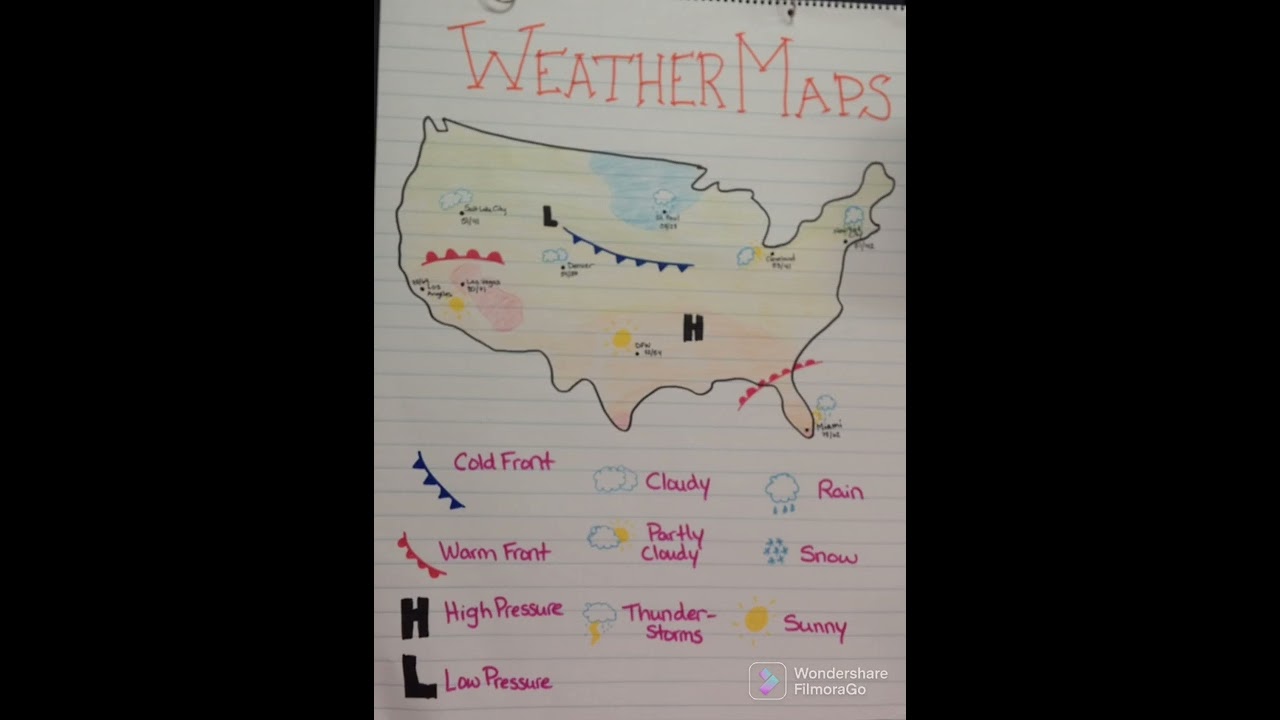 WEATHER MAPS
Salt Lake City
L
St. Paul
Denver
Cleveland
Los
Angeles
Las Vegas
H
DFW
Miami
Cold Front
Cloudy
Rain
Warm Front
Partly
Cloudy
Snow
High Pressure
H
Thunder-
storms
Sunny
L
Low Pressure
Wondershare
FilmoraGo